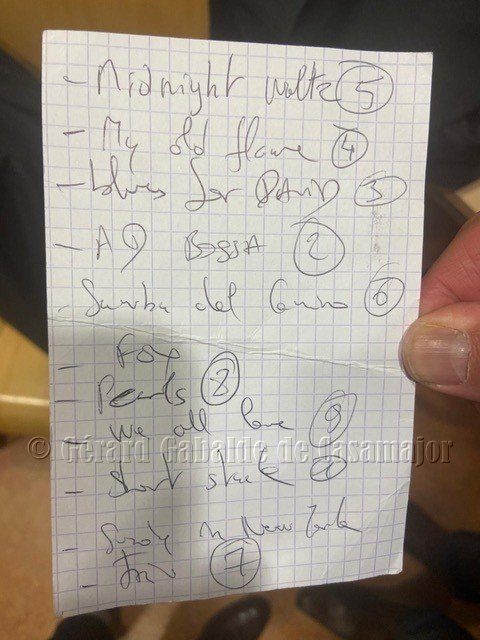 - Midnight waltz 5
- My old flame 4
- blues for DAVID 3
- AD BOSSA 2
- del 6
- Fox
- Pearls 8
- We all love 9
© Gérard Gabalde de Casamajor
- short 1
- Sunday in New York
- 7